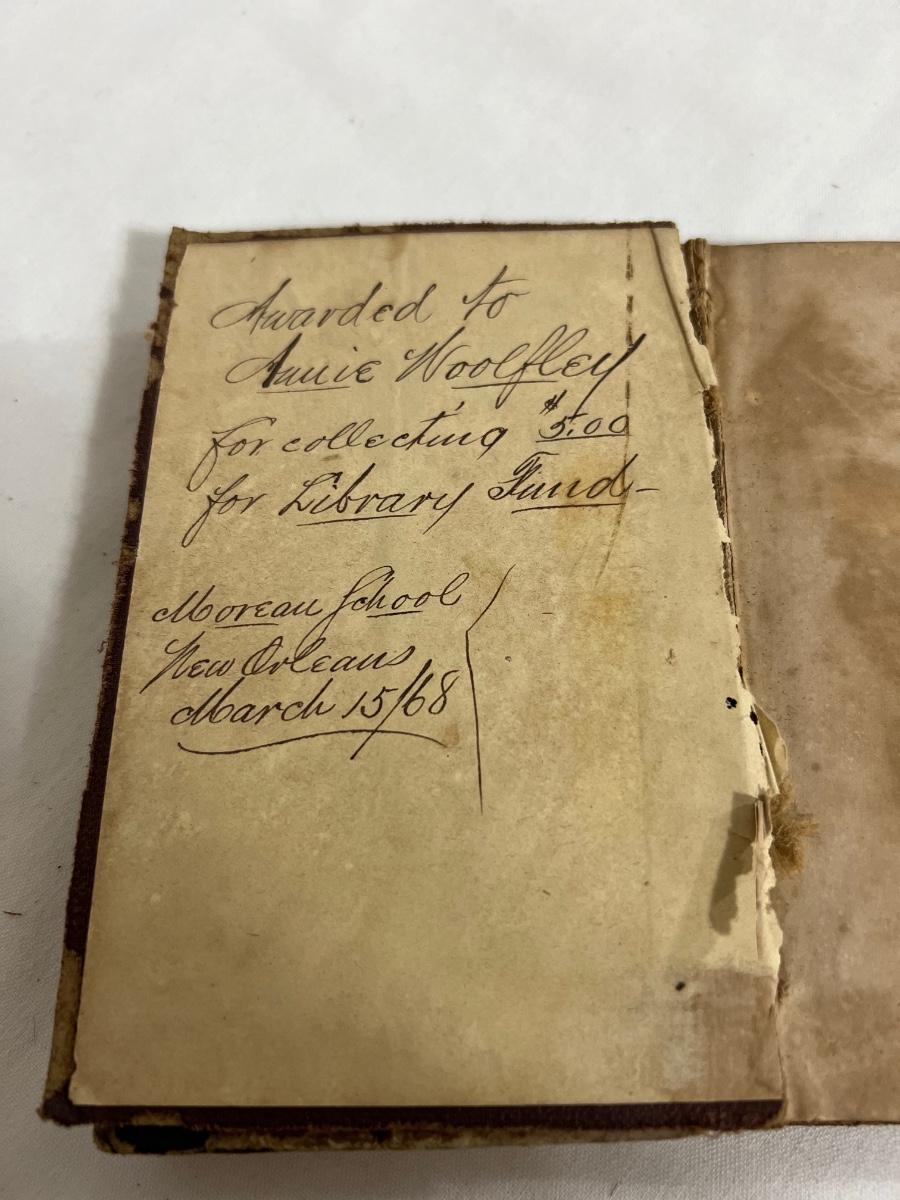 Awarded to
Annie Woolfley
for collecting $5.00
for Library Fund-
Moreau School
New Orleans
March 15/68